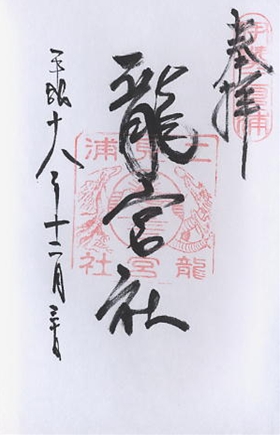 奉拝
龍宮社
平成十八年十二月三十日
二見浦
龍宮社